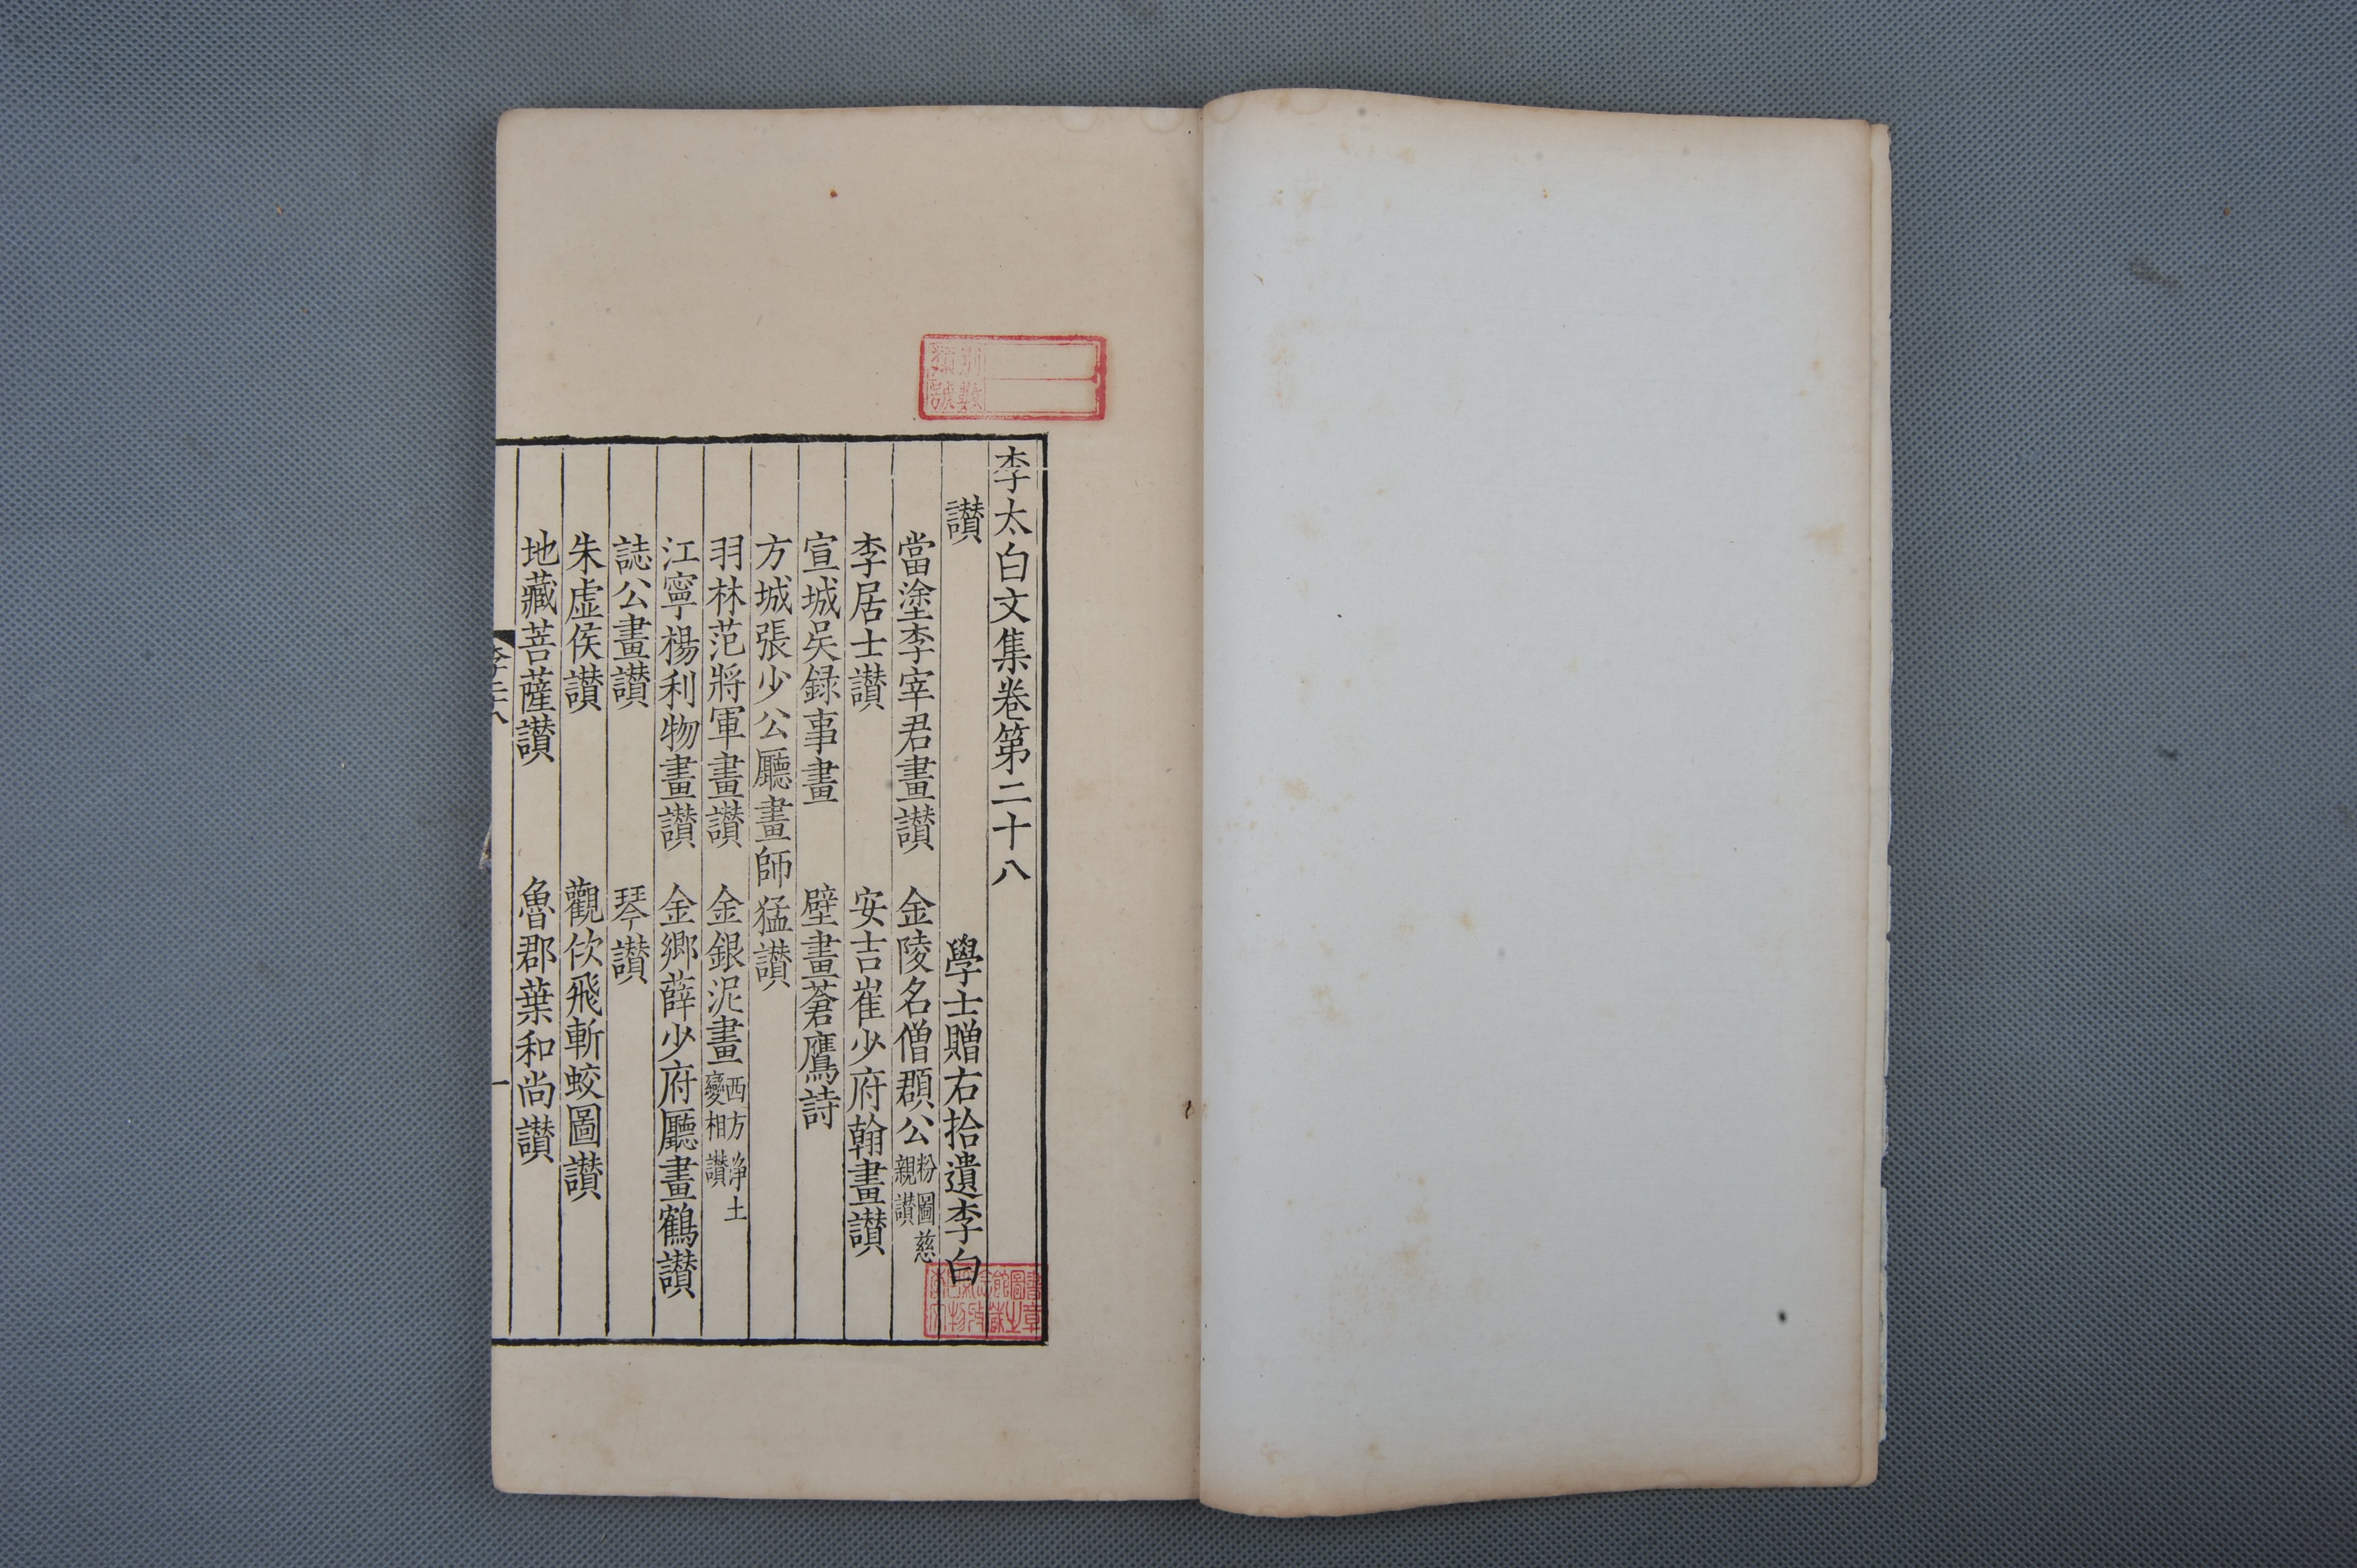 李太白文集卷第二十八
讃　學士贈右拾遺李白
當塗李宰君畫讃　金陵名僧頵公粉圖慈親讃
李居士讃　安吉崔少府翰畫讃
宣城吳録事畫　壁畫蒼鷹詩
方城張少公廳畫師猛讃
羽林范將軍畫讃　金銀泥畫西方淨土變相讃
江寧楊利物畫讃　金鄉薛少府廳畫鶴讃
誌公畫讃　琴讃
朱虛侯讃　觀佽飛斬蛟圖讃
地藏菩薩讃　魯郡葉和尚讃
李二十八
一